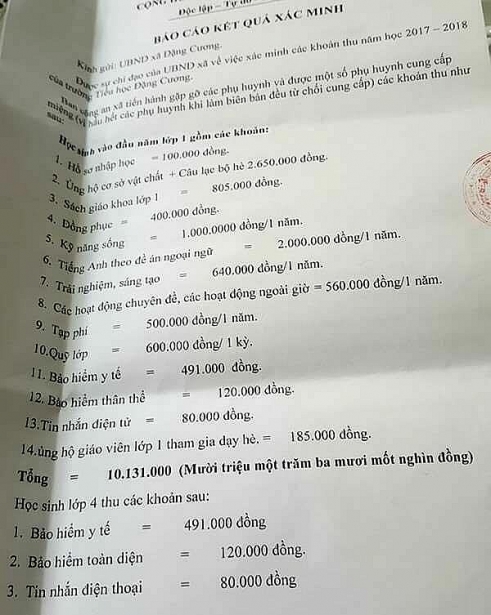 CỘNG
Độc lập – Tự do
BÁO CÁO KẾT QUẢ XÁC MINH
Kính gửi: UBND xã Đặng Cương.
Được sự chỉ đạo của UBND xã về việc xác minh các khoản thu năm học 2017 – 2018
của trường Tiểu học Đặng Cương.
Ban công an xã tiến hành gặp gỡ các phụ huynh và được một số phụ huynh cung cấp
miệng (vì hầu hết các phụ huynh khi làm biên bản đều từ chối cung cấp) các khoản thu như
sau:
Học sinh vào đầu năm lớp 1 gồm các khoản:
1. Hồ sơ nhập học = 100.000 đồng.
2. Ủng hộ cơ sở vật chất + Câu lạc bộ hè 2.650.000 đồng.
3. Sách giáo khoa lớp 1 = 805.000 đồng.
4. Đồng phục = 400.000 đồng.
5. Kỹ năng sống = 1.000.0000 đồng/1 năm.
6. Tiếng Anh theo đề án ngoại ngữ = 2.000.000 đồng/1 năm.
7. Trải nghiệm, sáng tạo = 640.000 đồng/1 năm.
8. Các hoạt động chuyên đề, các hoạt động ngoài giờ = 560.000 đồng/1 năm.
9. Tạp phí = 500.000 đồng/1 năm.
10.Quỹ lớp = 600.000 đồng/ 1 kỳ.
11. Bảo hiểm y tế = 491.000 đồng.
12. Bảo hiểm thân thể = 120.000 đồng.
13.Tin nhắn điện tử = 80.000 đồng.
14.ủng hộ giáo viên lớp 1 tham gia dạy hè. = 185.000 đồng.
Tổng = 10.131.000 (Mười triệu một trăm ba mươi mốt nghìn đồng)
Học sinh lớp 4 thu các khoản sau:
1. Bảo hiểm y tế = 491.000 đồng
2. Bảo hiểm toàn diện = 120.000 đồng.
3. Tin nhắn điện thoại = 80.000 đồng